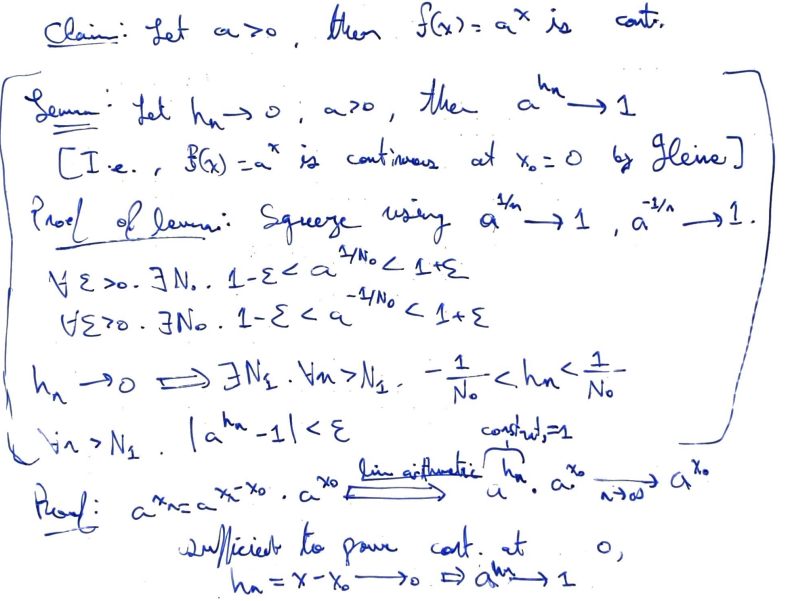 Claim: Let a>0, then f(x) = a^x is cont.
Lemma: Let hₙ → 0, a>0, then a^{hₙ} → 1
[I.e., f(x) = a^x is continuous at x₀ = 0 by Heine]
Proof of lemma: Squeeze using a^{1/n} → 1, a^{-1/n} → 1.
∀ε>0. ∃N₀. 1-ε < a^{1/N₀} < 1+ε
∀ε>0. ∃N₀. 1-ε < a^{-1/N₀} < 1+ε
hₙ → 0 ⟹ ∃N₁. ∀n>N₁. -1/N₀ < hₙ < 1/N₀
∀n>N₁. |a^{hₙ} -1| < ε
constant, =1
Proof: a^{xₙ} = a^{xₙ-x₀} · a^{x₀} ⟺ lim arithmetic a^{hₙ} · a^{x₀} →_{n→∞} a^{x₀}
sufficient to prove cont. at 0,
hₙ = x - x₀ → 0 ⟹ a^{hₙ} → 1